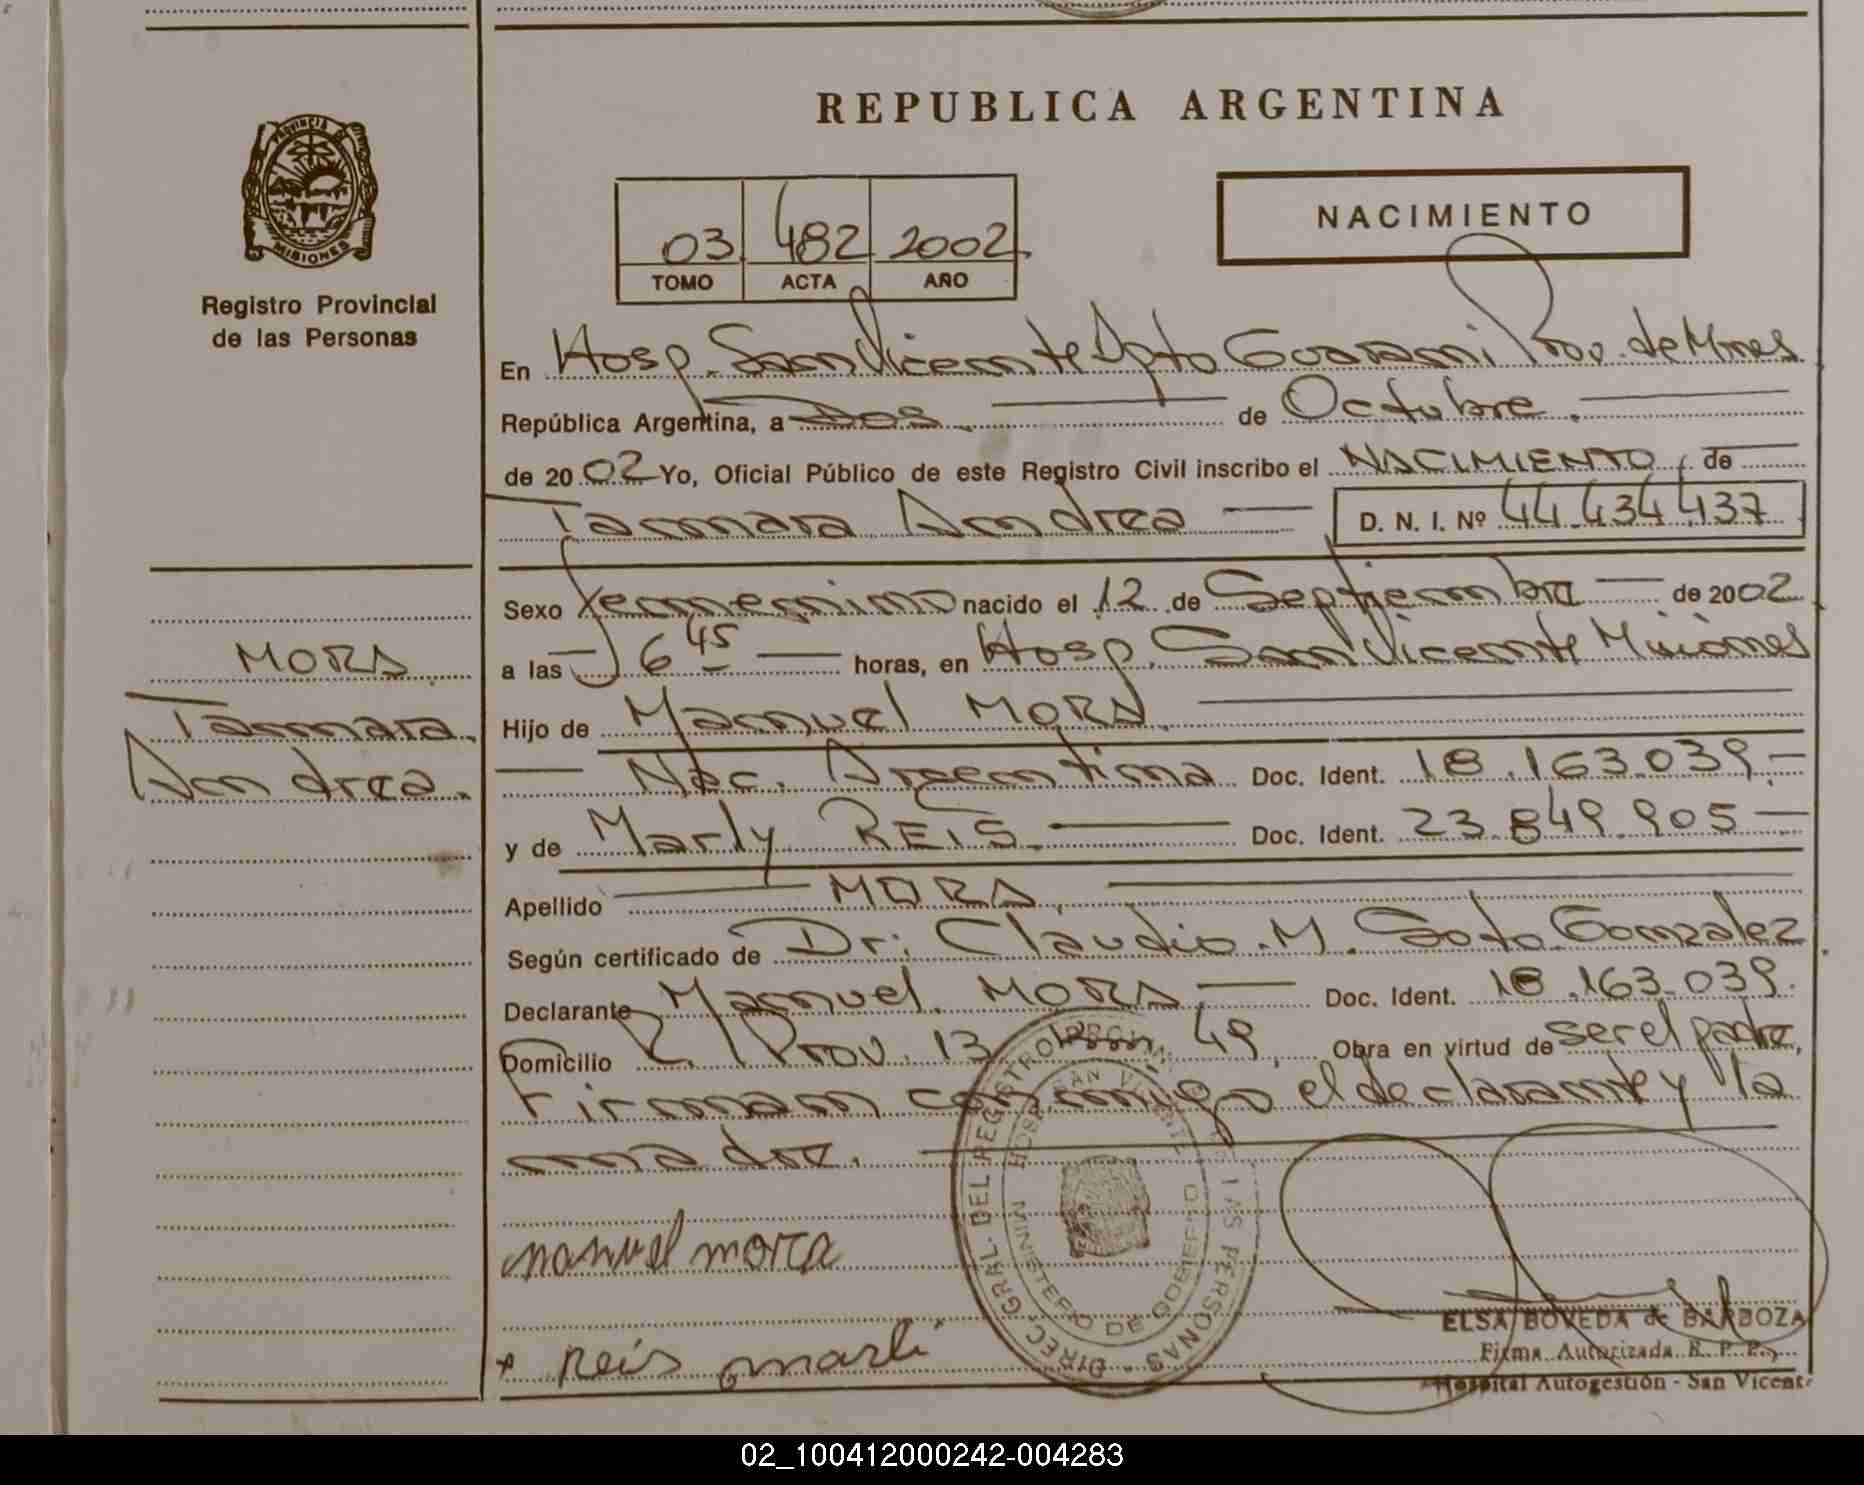 REPUBLICA ARGENTINA
PROVINCIA DE
MISIONES
Registro Provincial
de las Personas
03 482 2002
TOMO ACTA AÑO
NACIMIENTO
En Hosp. San Vicente Dpto Guarani Prov. de Mnes
República Argentina, a Dos de Octubre
de 2002 Yo, Oficial Público de este Registro Civil inscribo el NACIMIENTO, de
Tamara Andrea D. N. I. Nº 44.434.437
Sexo Femenino nacido el 12 de Septiembre de 2002
a las 6 45 horas, en Hosp. San Vicente Misiones
Hijo de Manuel MORA
Nac. Argentina Doc. Ident. 18.163.039.-
y de Marly REIS. Doc. Ident. 23.849.905
Apellido MORA
Según certificado de Dr: Claudio M. Soto Gonzalez
Declarante Manuel MORA Doc. Ident. 18.163.039.
Domicilio Prov. 13 Km 49, Obra en virtud de ser el padre,
Firman conmigo el declarante y la
madre.
manuel mora
Reis marli
MORA
Tamara
Andrea.
DIREC. GRAL. DEL REGISTRO PROVIN. DE LAS PERSONAS
HOSP. SAN VICENTE
MINISTERIO DE GOBIERNO
ELSA BOVEDA de BARBOZA
Firma Autorizada R. P. P.
Hospital Autogestión - San Vicente
02_100412000242-004283